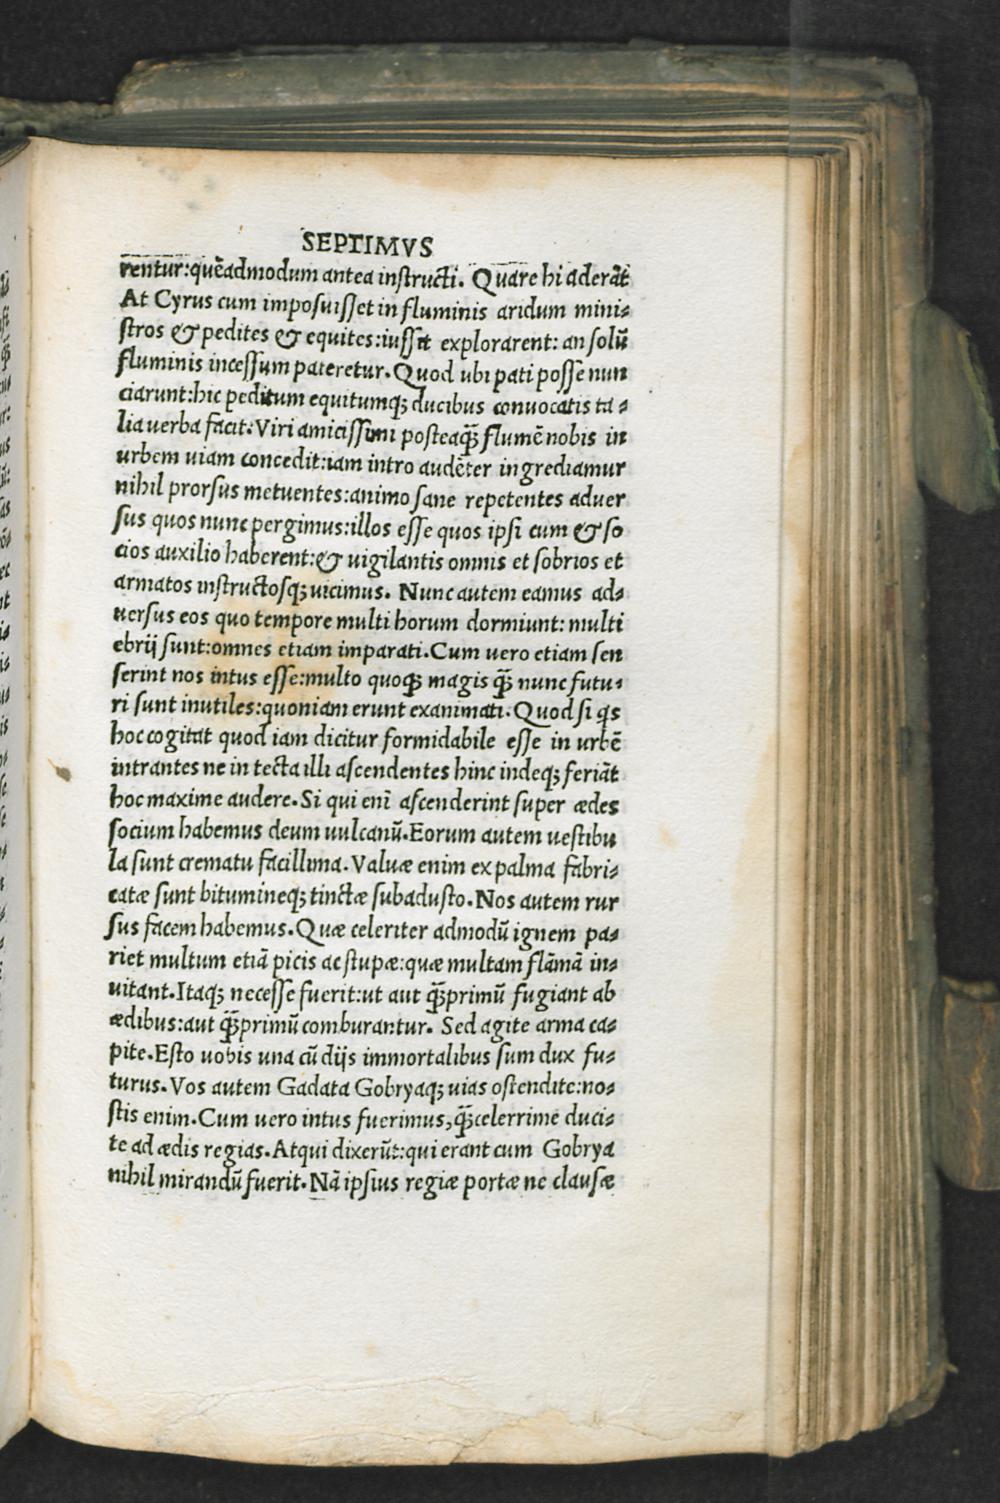 SEPTIMVS
rentur:quẽadmodum antea instructi. Quare hi aderãt
At Cyrus cum imposuisset in fluminis aridum mini-
stros & pedites & equites:iussit explorarent: an solũ
fluminis incessum pateretur. Quod ubi pati posse nun
ciarunt:hic peditum equitumq; ducibus convocatis ta-
lia verba facit:Viri amicissimi posteaq̃ flumẽ nobis in
urbem uiam concedit:iam intro audẽter ingrediamur
nihil prorsus metuentes:animo sane repetentes adver
sus quos nunc pergimus:illos esse quos ipsi cum & so
cios auxilio haberent:& vigilantis omnis et sobrios et
armatos instructosq; vicimus. Nunc autem eamus ad-
versus eos quo tempore multi horum dormiunt: multi
ebrij sunt:omnes etiam imparati. Cum vero etiam sen
serint nos intus esse:multo quoq; magis q̃ nunc futu-
ri sunt inutiles:quoniam erunt exanimati. Quod si q̃s
hoc cogitat quod iam dicitur formidabile esse in urbẽ
intrantes ne in tecta illi ascendentes hinc indeq; feriãt
hoc maxime audere. Si qui enĩ ascenderint super ædes
socium habemus deum uulcanũ. Eorum autem uestibu
la sunt crematu facillima. Valuæ enim ex palma fabri-
catæ sunt bitumineq; tinctæ subadusto. Nos autem rur
sus facem habemus. Quæ celeriter admodũ ignem pa-
riet multum etiã picis ac stupæ:quæ multam flãmã in-
uitant. Itaq; necesse fuerit:ut aut q̃primũ fugiant ab
ædibus:aut q̃primũ comburantur. Sed agite arma ca-
pite. Esto uobis una cũ dijs immortalibus sum dux fu-
turus. Vos autem Gadata Gobryaq; uias ostendite:no-
stis enim. Cum uero intus fuerimus, q̃celerrime duci-
te ad ædis regias. Atqui dixerũt:qui erant cum Gobrya
nihil mirandũ fuerit. Nã ipsius regiæ portæ ne clausæ